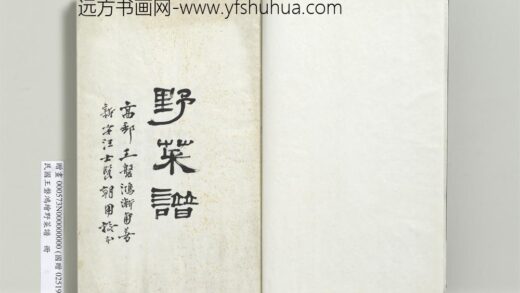 远方书画网-www.yfshuhua.com
野菜譜
高郵王磐鴻漸自著
新安汪士賢朝用校

贈畫 000573N000000000 (國贈 02519
民國王磐鴻漸野菜譜 冊